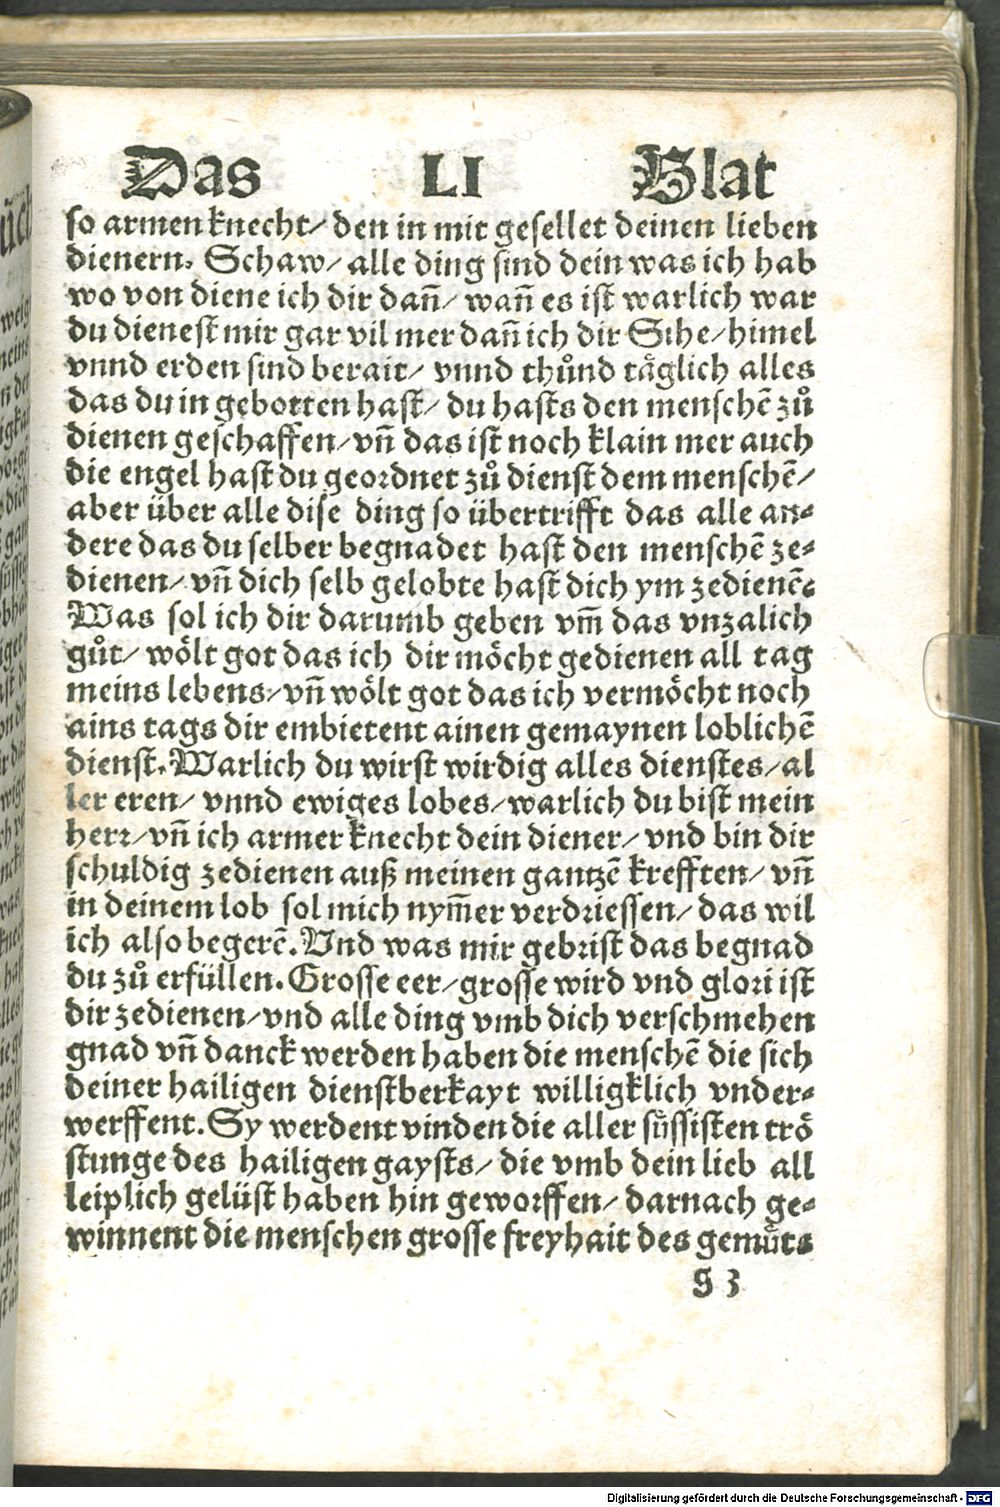 Das LI Blat
so armen knecht/ den in mit gesellet deinen lieben
dienern. Schaw/ alle ding sind dein was ich hab
wo von diene ich dir dañ/ wañ es ist warlich war
du dienest mir gar vil mer dañ ich dir Sihe/ himel
vnnd erden sind berait/ vnnd thůnd täglich alles
das du in gebotten hast/ du hasts den menschē zů
dienen geschaffen/ vñ das ist noch klain mer auch
die engel hast du geordnet zů dienst dem menschē/
aber über alle dise ding so übertrifft das alle an-
dere das du selber begnadet hast den menschē ze-
dienen/ vñ dich selb gelobte hast dich ym zedienē.
Was sol ich dir darumb geben vm̄ das vnzalich
gůt/ wölt got das ich dir möcht gedienen all tag
meins lebens/ vñ wölt got das ich vermöcht noch
ains tags dir embietent ainen gemaynen loblichē
dienst. Warlich du wirst wirdig alles dienstes/ al
ler eren/ vnnd ewiges lobes/ warlich du bist mein
herr/ vñ ich armer knecht dein diener/ vnd bin dir
schuldig zedienen auß meinen gantzē krefften/ vñ
in deinem lob sol mich nym̄er verdriessen/ das wil
ich also begerē. Vnd was mir gebrist das begnad
du zů erfüllen. Grosse eer/ grosse wird vnd glori ist
dir zedienen/ vnd alle ding vmb dich verschmehen
gnad vñ danck werden haben die menschē die sich
deiner hailigen dienstberkayt willigklich vnder-
werffent. Sy werdent vinden die aller süssisten trö
stunge des hailigen gaysts/ die vmb dein lieb all
leiplich gelüst haben hin geworffen/ darnach ge-
winnent die menschen grosse freyhait des gemůts
S 3
Digitalisierung gefördert durch die Deutsche Forschungsgemeinschaft - DFG